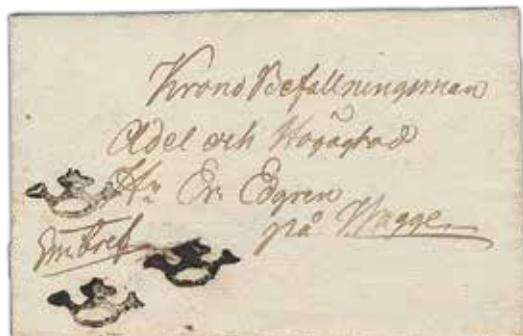 Krono Befallningsman
Ädel och Högagtad
Hr Er. Edgren
på Wagge
Embref